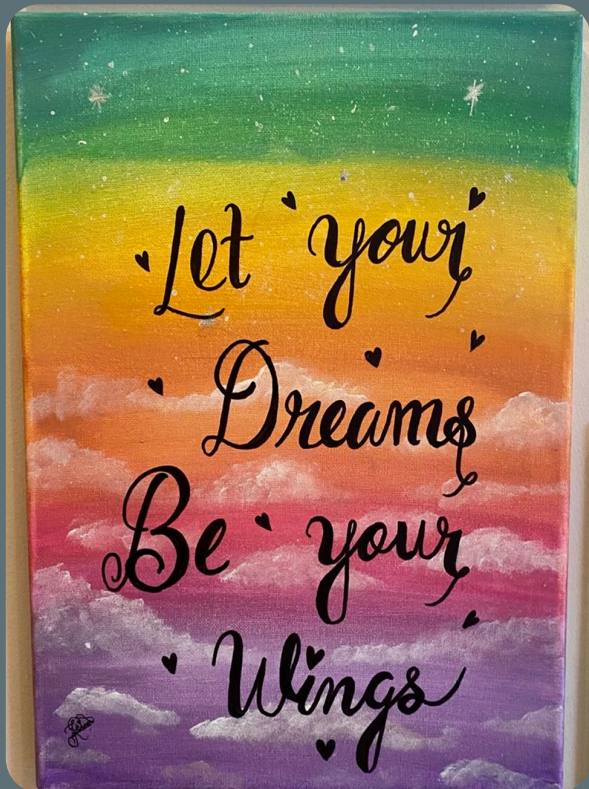 Let your
Dreams
Be your
Wings